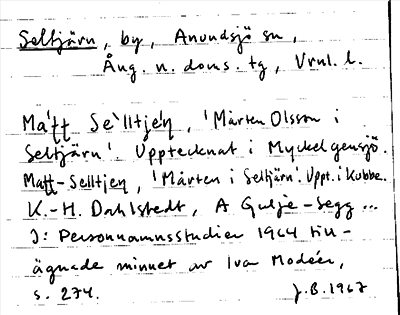 Seltjärn, by, Anundsjö sn,
Ång. n. doms. tg, Vrnl. l.
Ma'tt Se`lltje'n, 'Mårten Olsson i
Seltjärn'. Upptecknat i Myckelgensjö.
Matt-Selltjen, 'Mårten i Seltjärn'. Uppt. i Kubbe.
K.-H. Dahlstedt, A Gulje-Segg...
I: Personnamnsstudier 1964 till-
ägnade minnet av Ivar Modéer,
s. 274. J.B. 1967